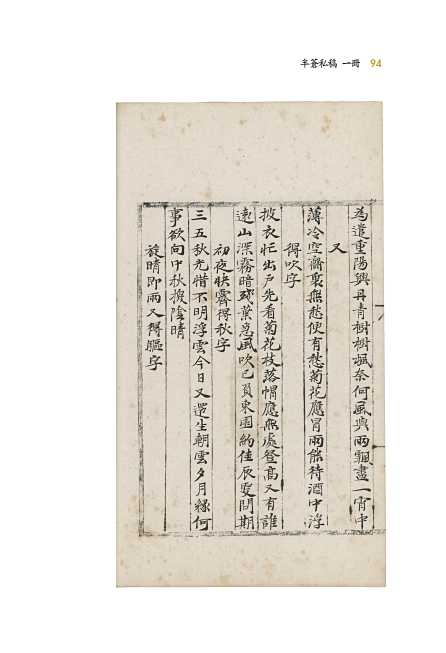 半蒼私稿 一冊 94
為遣重陽興丹青樹樹楓奈何風與兩飄盡一宵中
又
薄冷空齋裏無愁便有愁菊花應冒雨能待酒中浮
得吹字
披衣忙出戶先看菊花枝落帽應無處登高又有誰
遠山深霧暗葉急風吹已負東園約佳辰更問期
初夜快霽得秋字
三五秋光惜不明浮雲今日又還生朝雲夕月緣何
事欲向中秋猜陰晴
旋晴即雨又得驅字